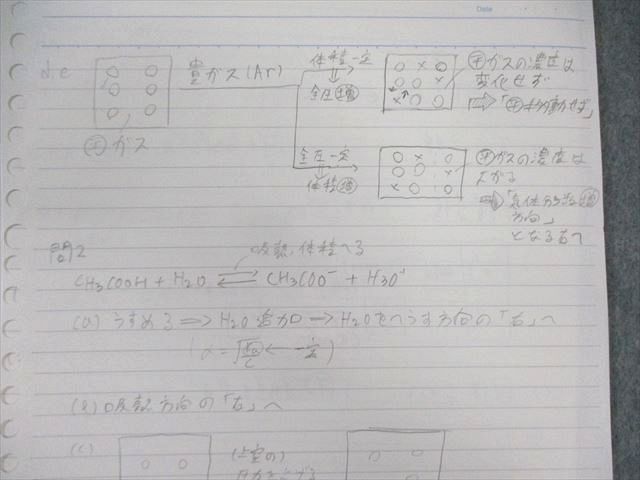 Date
d,e
貴ガス(Ar)
体積一定
⇓
全圧㊥増
㊉ガスの濃度は
変化せず
⇨「平衡移動せず」
㊉ガス
全圧一定
⇓
体積増
㊉ガスの濃度は
下がる
⇨「気体分子数増
方向」
となる右へ
問2
吸熱,体積へる
CH3COOH + H2O ⇄ CH3COO⁻ + H3O⁺
(a) うすめる ⟹ H2O追加 → H2Oをへらす方向の「右」へ
(α = √Ka/C ← 一定)
(b) 吸熱方向の「右」へ
(c)
(上空の)
圧力を上げる